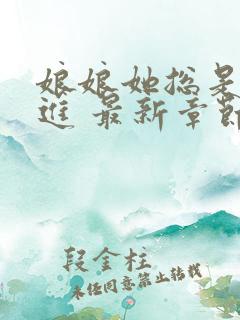 娘娘她总是
进 最新章节
段金柱
未经同意禁止转载